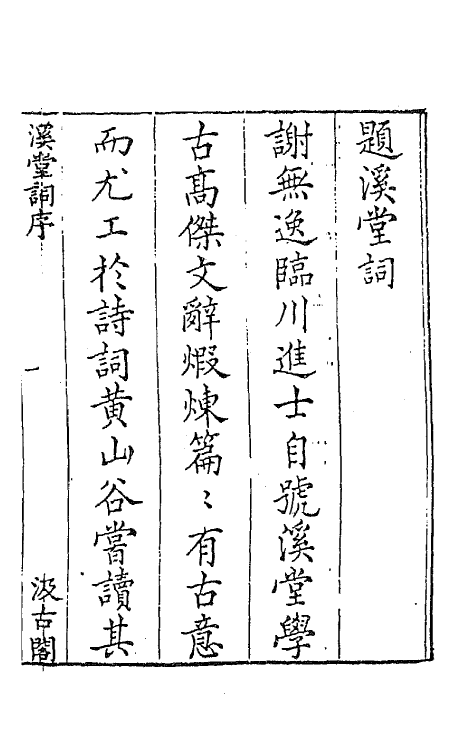 題溪堂詞
謝無逸臨川進士自號溪堂學
古高傑文辭煆煉篇〻有古意
而尤工於詩詞黄山谷嘗讀其
溪堂詞序
一
汲古閣